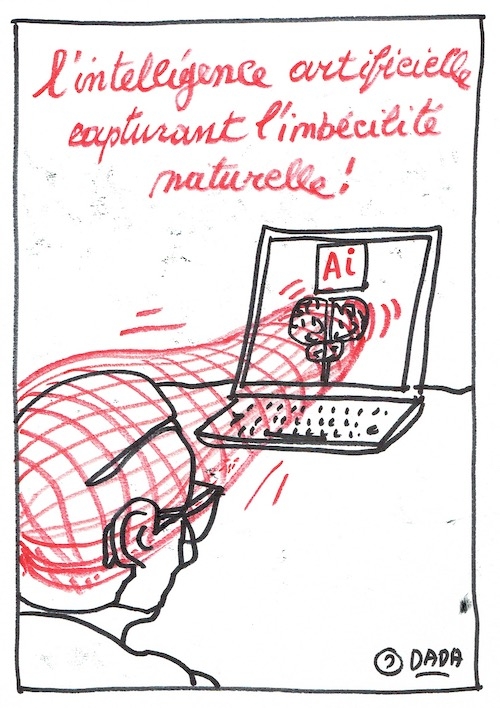 l'intelligence artificielle
capturant l'imbécilité
naturelle !
Ai
DADA